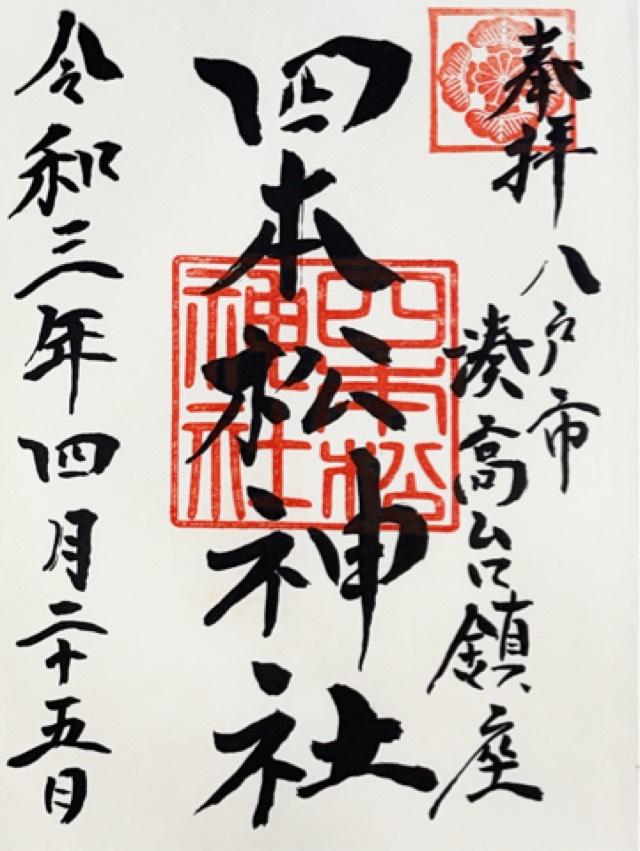 奉拝
八戸市
湊高台鎮座
四本松神社
四本松神社
令和三年四月二十五日